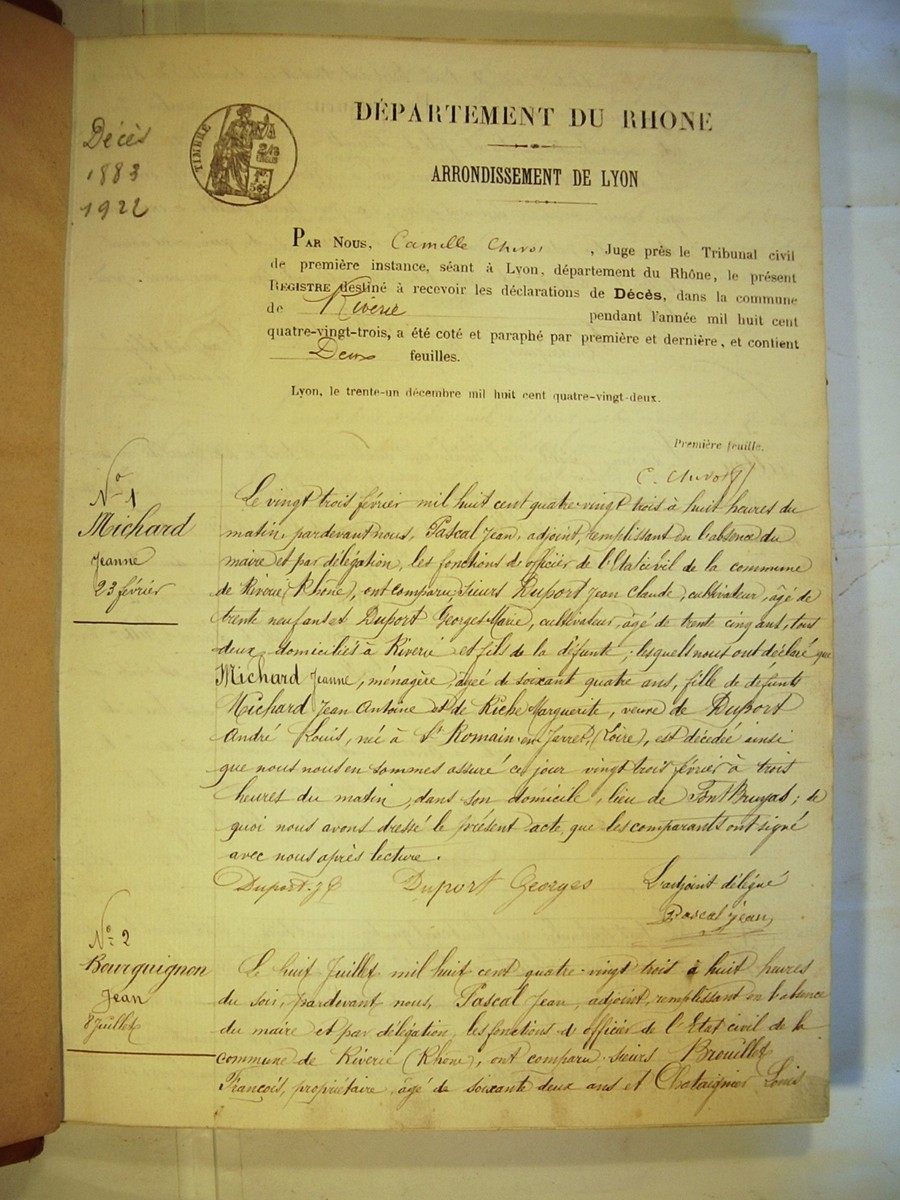 Décès
1883
1922
TIMBRE
DÉPARTEMENT DU RHONE
ARRONDISSEMENT DE LYON
PAR NOUS, Camille , Juge près le Tribunal civil
de première instance, séant à Lyon, département du Rhône, le présent
REGISTRE destiné à recevoir les déclarations de Décès, dans la commune
de Riverie pendant l'année mil huit cent
quatre-vingt-trois, a été coté et paraphé par première et dernière, et contient
Deux feuilles.
Lyon, le trente-un décembre mil huit cent quatre-vingt-deux.
Première feuille.
No 1
Michard
Jeanne
23 février
Le vingt trois février mil huit cent quatre-vingt trois à huit heures du
matin, pardevant nous, Pascal Jean, adjoint, remplissant en l'absence du
maire et par délégation, les fonctions d'officier de l'Etat civil de la commune
de Riverie (Rhône), ont comparu, sieurs Duport Jean Claude, cultivateur, âgé de
trente neuf ans et Duport Georges Marie, cultivateur, âgé de trente cinq ans, tous
deux domiciliés à Riverie et fils de la défunte; lesquels nous ont déclaré que
Michard Jeanne, ménagère, âgée de soixant quatre ans, fille de défunts
Michard Jean Antoine et de Riche Marguerite, veuve de Duport
André Louis, née à St Romain-en-Jarret, (Loire), est décédée ainsi
que nous nous en sommes assuré ce jour vingt trois février à trois
heures du matin, dans son domicile, lieu de ; de
quoi nous avons dressé le présent acte, que les comparants ont signé
avec nous après lecture.
Duport J C Duport Georges L'adjoint délégué
Pascal Jean
No 2
Bourguignon
Jean
8 Juillet
Le huit Juillet mil huit cent quatre-vingt trois à huit heures
du soir, pardevant nous, Pascal Jean, adjoint, remplissant en l'absence
du maire et par délégation, les fonctions d'officier de l'Etat civil de la
commune de Riverie (Rhône), ont comparu sieurs Brouillet
François, propriétaire, âgé de soixante deux ans et Chataignier Louis